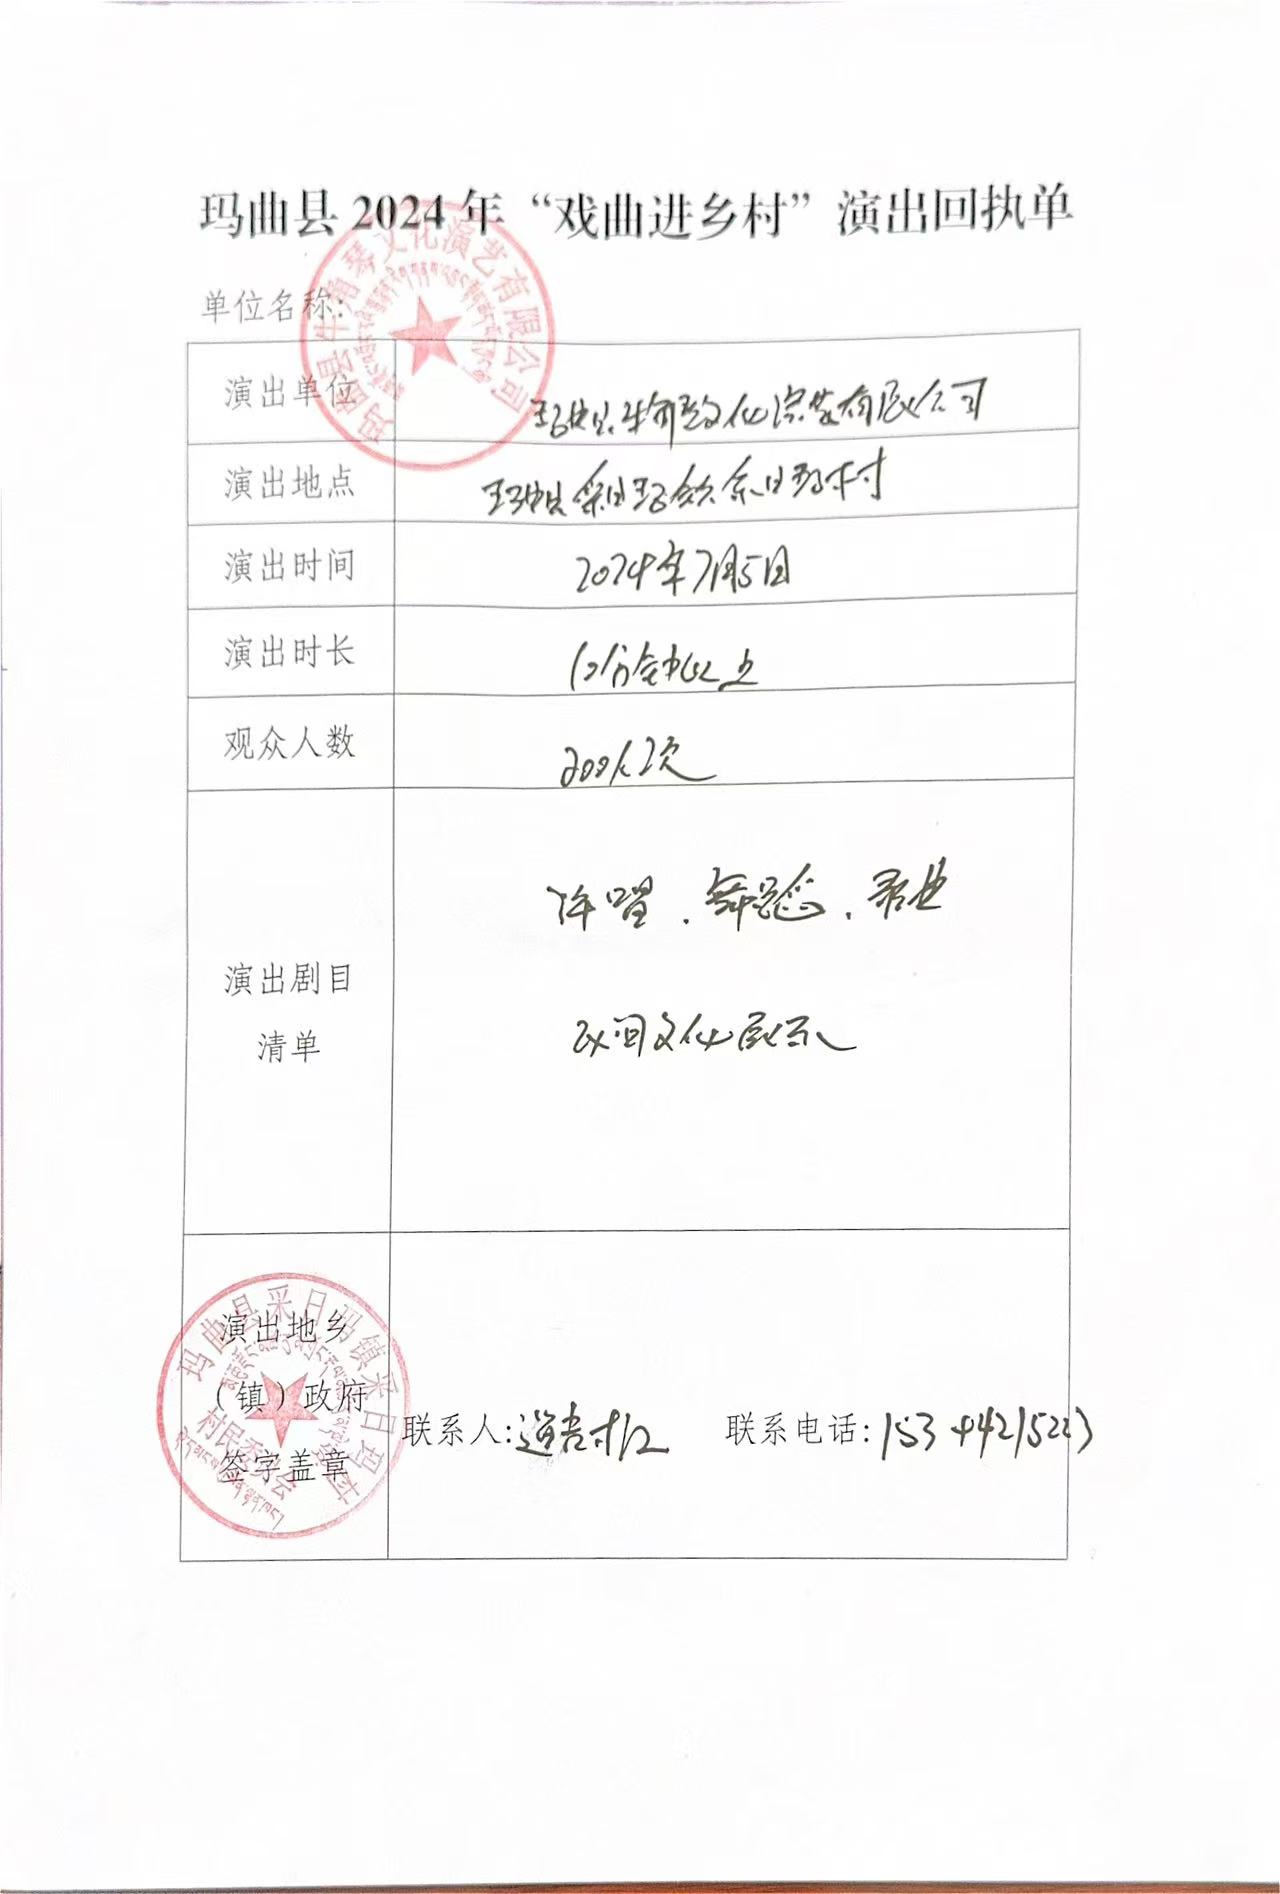 玛曲县2024年“戏曲进乡村”演出回执单
单位名称:
玛曲县牛角琴文化演艺有限公司
演出单位
玛曲县牛角琴文化演艺有限公司
演出地点
玛曲县采日玛镇采日玛村
演出时间
2024年7月5日
演出时长
分钟以上
观众人数
200人次
演出剧目
清单
弹唱.舞蹈.
民间文化展示
演出地乡
（镇）政府
签字盖章
玛曲县采日玛镇采日玛村
村民委员会
联系人:道吉 联系电话: